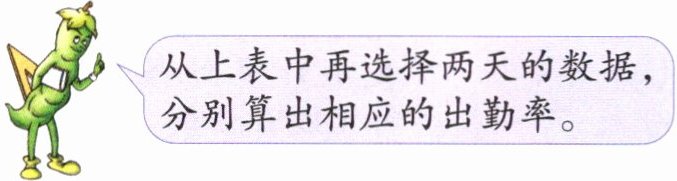 从上表中再选择两天的数据，
分别算出相应的出勤率。